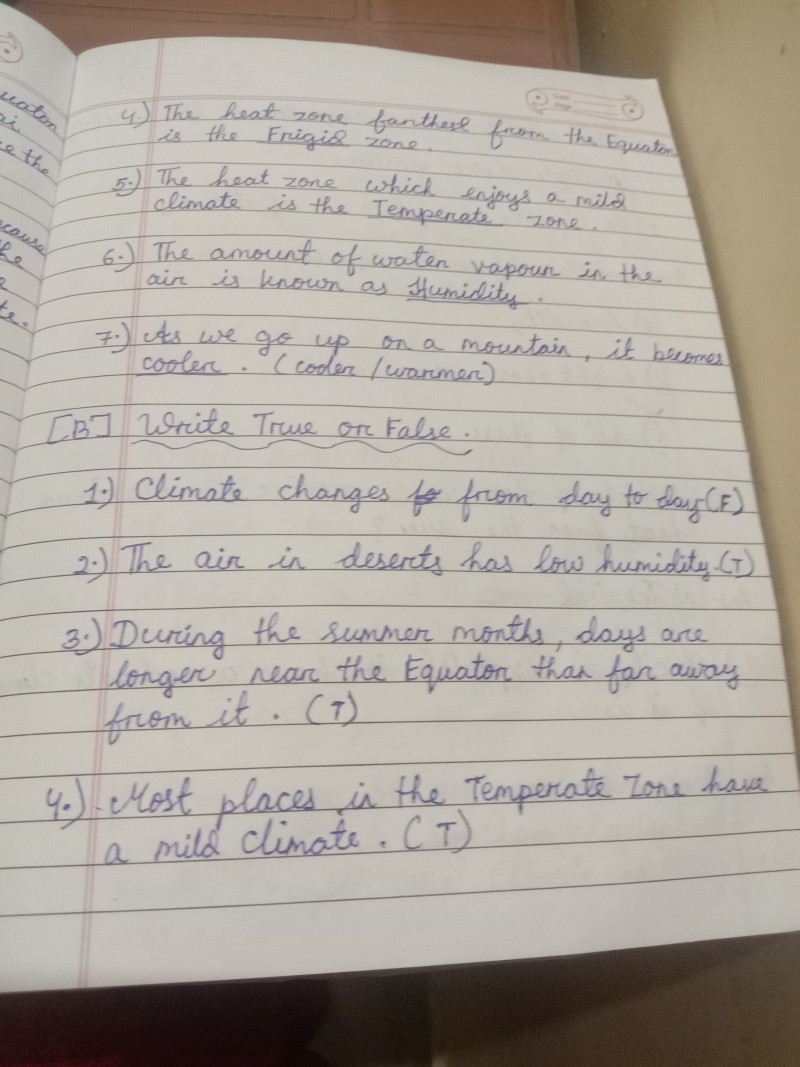 uator
ai
e the
cause
he
e
te.
4.) The heat zone farthest from the Equator
is the Frigid zone.
5.) The heat zone which enjoys a mild
climate is the Temperate zone.
6.) The amount of water vapour in the
air is known as Humidity.
7.) As we go up on a mountain, it becomes
cooler. (cooler / warmer)
[B] Write True or False.
1.) Climate changes from day to day (F)
2.) The air in deserts has low humidity. (T)
3.) During the summer months, days are
longer near the Equator than far away
from it. (T)
4.) Most places in the Temperate Zone have
a mild climate. (T)